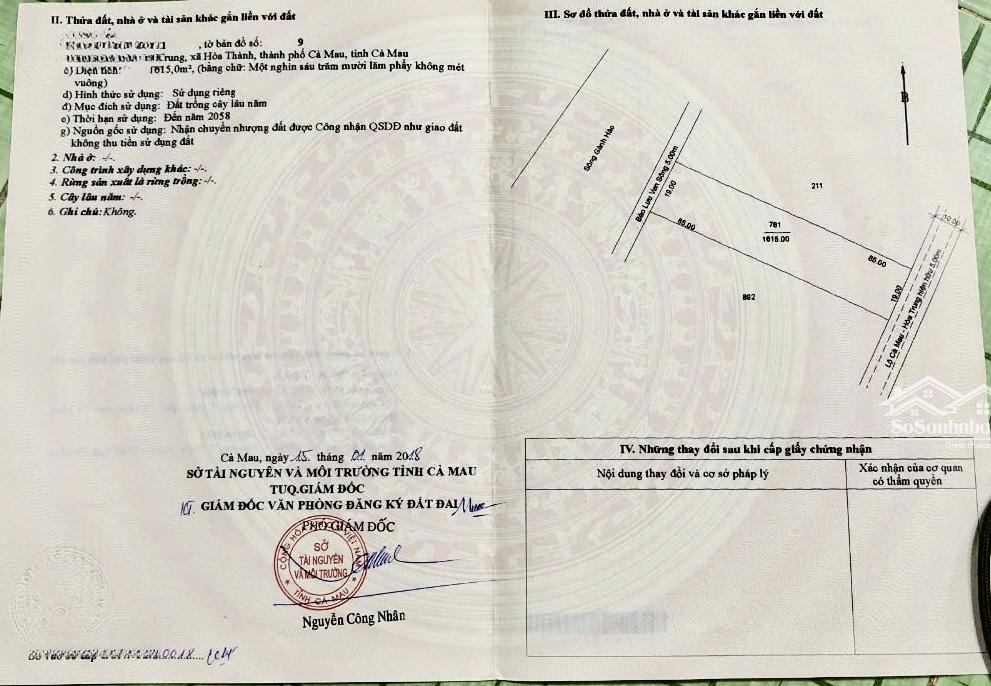 II. Thửa đất, nhà ở và tài sản khác gắn liền với đất
, tờ bản đồ số: 9
Trung, xã Hòa Thành, thành phố Cà Mau, tỉnh Cà Mau
c) Diện tích: 1615,0m², (bằng chữ: Một nghìn sáu trăm mười lăm phẩy không mét
vuông)
d) Hình thức sử dụng: Sử dụng riêng
đ) Mục đích sử dụng: Đất trồng cây lâu năm
e) Thời hạn sử dụng: Đến năm 2058
g) Nguồn gốc sử dụng: Nhận chuyển nhượng đất được Công nhận QSDĐ như giao đất
không thu tiền sử dụng đất
2. Nhà ở: -/-.
3. Công trình xây dựng khác: -/-.
4. Rừng sản xuất là rừng trồng: -/-.
5. Cây lâu năm: -/-.
6. Ghi chú: Không.
Cà Mau, ngày 15 tháng 01 năm 2018
SỞ TÀI NGUYÊN VÀ MÔI TRƯỜNG TỈNH CÀ MAU
TUQ.GIÁM ĐỐC
KT. GIÁM ĐỐC VĂN PHÒNG ĐĂNG KÝ ĐẤT ĐAI
PHÓ GIÁM ĐỐC
CỘNG HÒA VIỆT NAM
SỞ
TÀI NGUYÊN
VÀ MÔI TRƯỜNG
TỈNH CÀ MAU
Nguyễn Công Nhân
0018
III. Sơ đồ thửa đất, nhà ở và tài sản khác gắn liền với đất
B
Sông Gành Hào
Bảo Lưu Ven Sông 5.00m
19.00
211
85.00
781
1615.00
10.00
85.00
19.00
892
Lộ Cà Mau - Hòa Trung hiện hữu 5.00m
SoSanhnha
IV. Những thay đổi sau khi cấp giấy chứng nhận
Nội dung thay đổi và cơ sở pháp lý
Xác nhận của cơ quan
có thẩm quyền